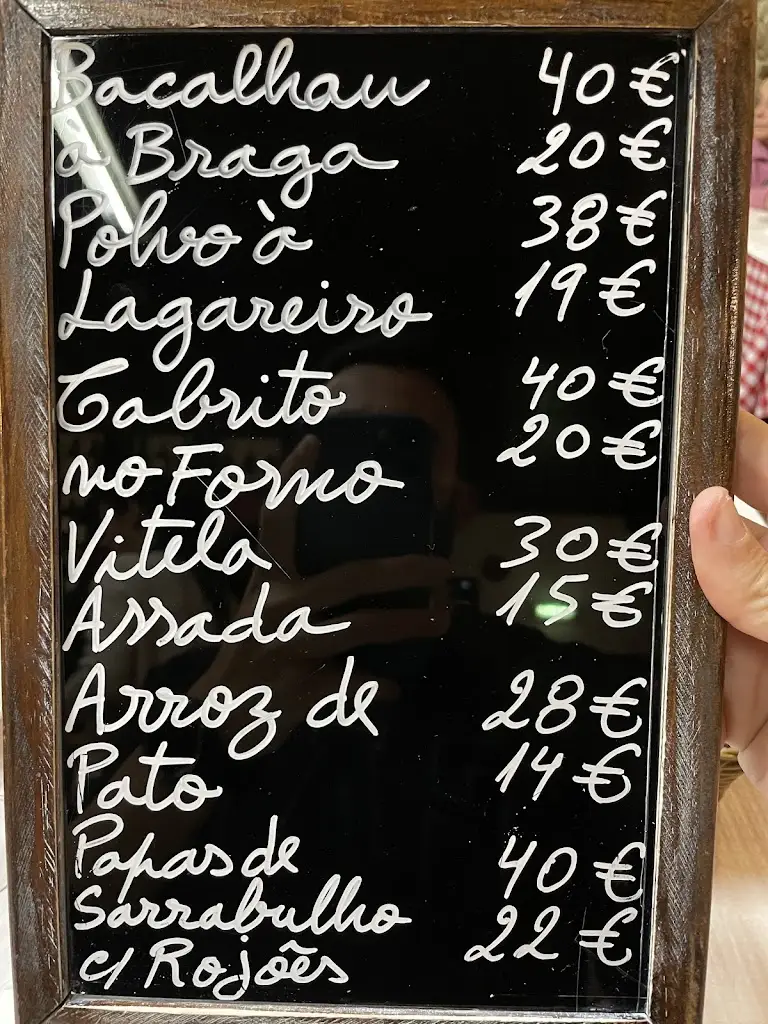 Bacalhau 40 €
a Braga 20 €
Polvo à 38 €
Lagareiro 19 €
Cabrito 40 €
no Forno 20 €
Vitela 30 €
Assada 15 €
Arroz de 28 €
Pato 14 €
Papas de 40 €
Sarrabulho 22 €
c/ Rojões